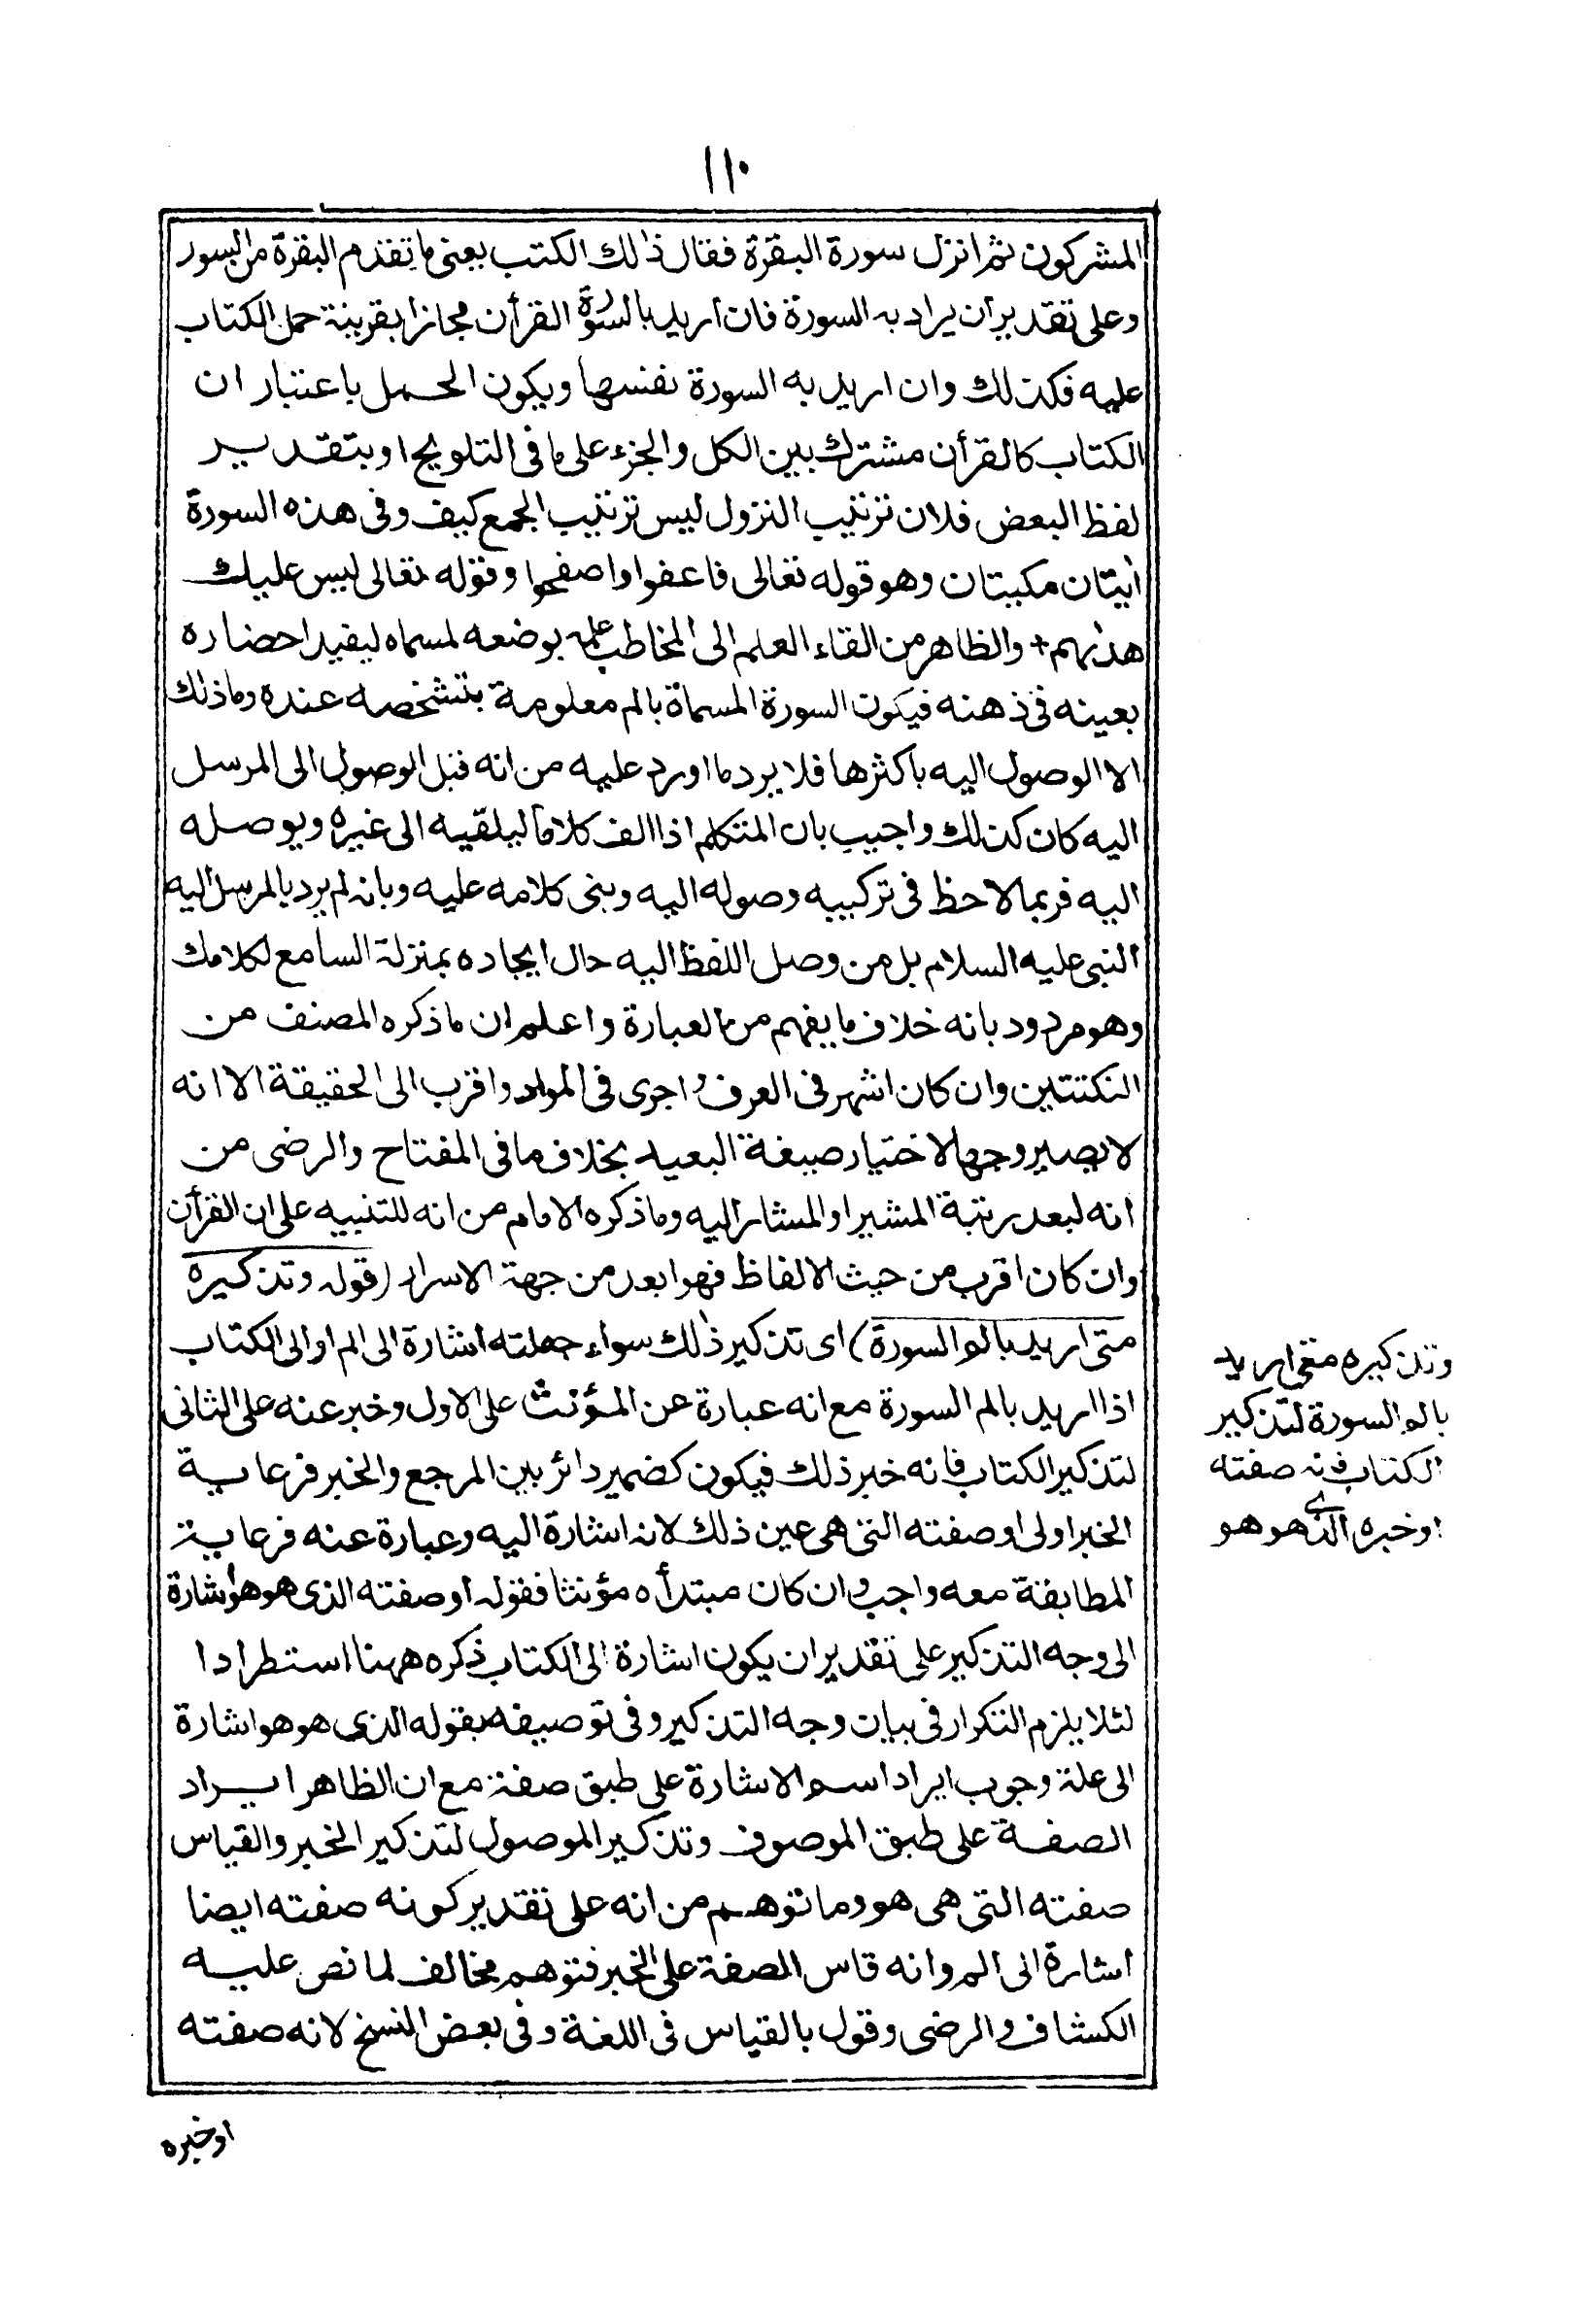 ١١٠
المشركون ثم انزل سورة البقرة فقال ذلك الكتب يعنى ما تقدم البقرة من السور
وعلى تقدير ان يراد به السورة فان اريد بالسورة القرأن مجازا بقرينة حمل الكتاب
عليه فكذلك وان اريد به السورة نفسها ويكون الحمل باعتبار ان
الكتاب كالقرأن مشترك بين الكل والجزء على ما فى التلويح او بتقدير
لفظ البعض فلان ترتيب النزول ليس ترتيب الجمع كيف وفى هذه السورة
ايتان مكيتان وهو قوله تعالى فاعفوا واصفحوا وقوله تعالى ليس عليك
هديهم + والظاهر من القاء العلم الى المخاطب علمه بوضعه لمسماه ليفيد احضاره
بعينه فى ذهنه فيكون السورة المسماة بالم معلومة بتشخصه عنده وما ذلك
الا الوصول اليه باكثرها فلا يرد ما اورد عليه من انه قبل الوصول الى المرسل
اليه كان كذلك واجيب بان المتكلم اذا الف كلاما ليلقيه الى غيره ويوصله
اليه فربما لاحظ فى تركيبه وصوله اليه وبنى كلامه عليه وبانه لم يرد بالمرسل اليه
النبى عليه السلام بل من وصل اللفظ اليه حال ايجاده بمنزلة السامع لكلامك
وهو مردود بانه خلاف ما يفهم من العبارة واعلم ان ما ذكره المصنف من
النكتتين وان كان اشهر فى العرف و اجرى فى المواد واقرب الى الحقيقة الا انه
لا يصير وجها لاختيار صيغة البعيد بخلاف ما فى المفتاح والرضى من
انه لبعد رتبة المشير او المشار اليه وما ذكره الامام من انه للتنبيه على ان القرأن
وان كان اقرب من حيث الالفاظ فهو ابعد من جهة الاسرار (قوله وتذكيره
متى اريد بالم السورة) اى تذكير ذلك سواء جعلته اشارة الى الم او الى الكتاب
اذا اريد بالم السورة مع انه عبارة عن المؤنث على الاول وخبر عنه على الثانى
لتذكير الكتاب فانه خبر ذلك فيكون كضمير دائر بين المرجع والخبر فرعاية
الخبر اولى او صفته التى هى عين ذلك لانه اشارة اليه وعبارة عنه فرعاية
المطابقة معه واجب وان كان مبتدأه مؤنثا فقوله او صفته الذى هو هو اشارة
الى وجه التذكير على تقدير ان يكون اشارة الى الكتاب ذكره ههنا استطرادا
لئلا يلزم التكرار فى بيان وجه التذكير وفى توصيفه بقوله الذى هو هو اشارة
الى علة وجوب ايراد اسم الاشارة على طبق صفة مع ان الظاهر ايراد
الصفة على طبق الموصوف وتذكير الموصول لتذكير الخبر والقياس
صفته التى هى هو وما توهم من انه على تقدير كونه صفته ايضا
اشارة الى الم وانه قاس الصفة على الخبر فتوهم مخالف لما نص عليه
الكشاف والرضى وقول بالقياس فى اللغة وفى بعض النسخ لانه صفته
وتذكيره متى اريد
بالم السورة لتذكير
الكتاب فانه صفته
او خبره الذى هو هو
او خبره